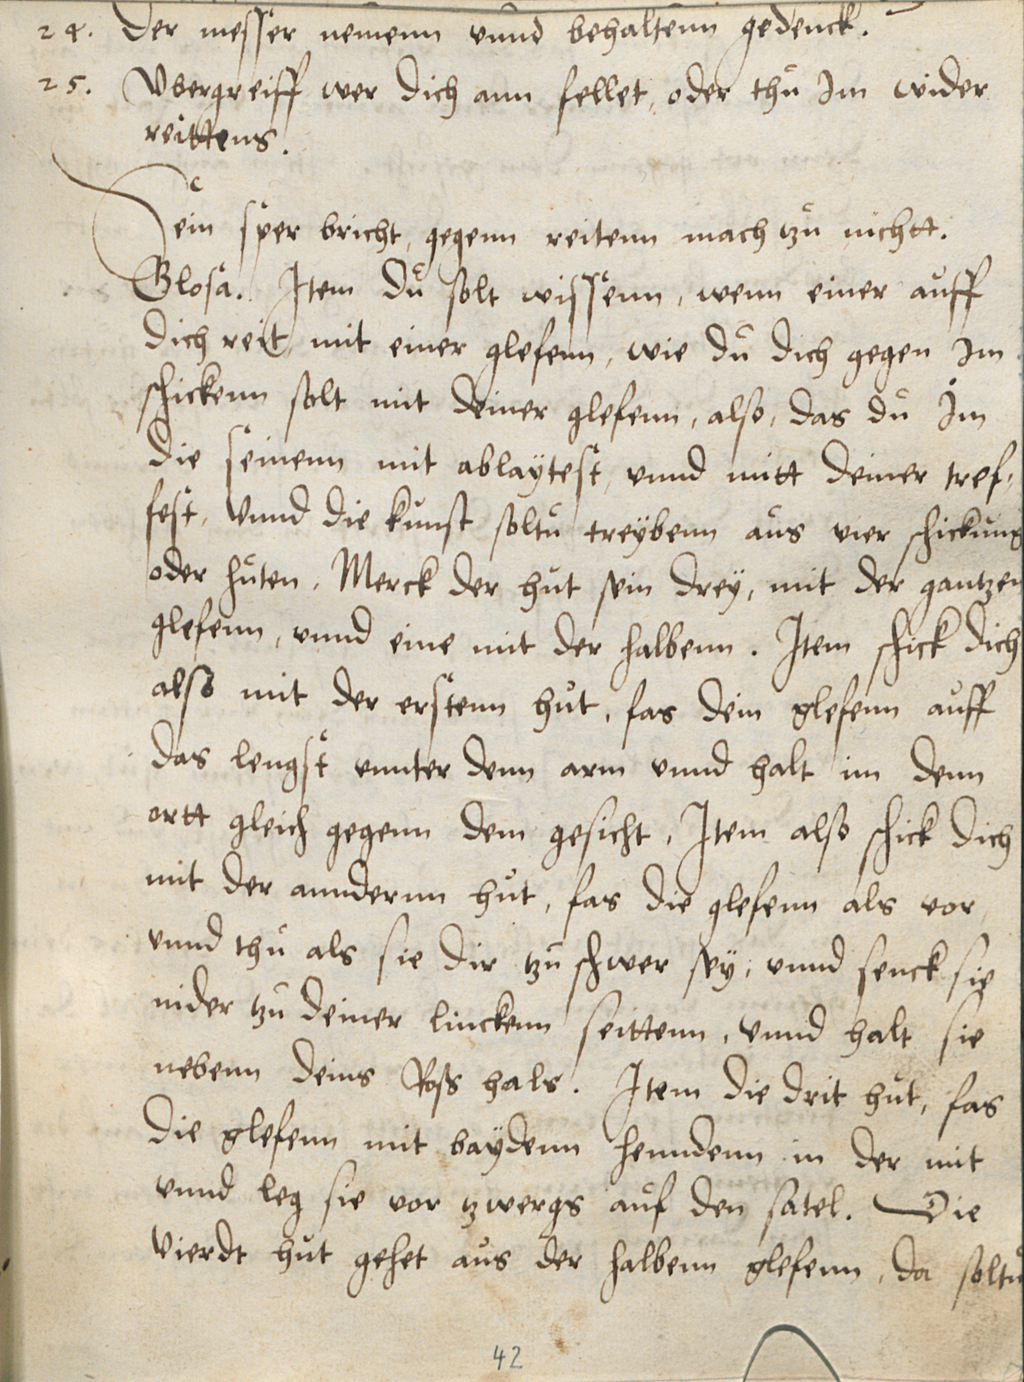 24. Der messer nemenn vnnd behaltenn gedenck.
25. Vbergreiff wer dich ann fellet, oder thů Im wider
reittens.
Dein sper bricht, gegenn reitenn mach tzů nichtt.
Glosa. Item dů solt wissenn, wenn einer aůff
dich reit, mit einer glefenn, wie dů dich gegen Im
schickenn solt mit deiner glefenn, also, das dů Im
die seinenn mit ablaÿtest, vnnd mitt deiner tref,
fest, Vnnd die kůnst soltů treÿbenn aůs vier schickůng
oder hůten. Merck der hůt sein dreÿ, mit der gantzen
glefenn, vnnd eine mit der halbenn. Item schick dich
also mit der erstenn hůt, fas dein glefenn aůff
das lengst vnnter denn arm vnnd halt im denn
ortt gleich gegenn dem gesicht, Item also schick dich
mit der anndernn hůt, fas die glefenn als vor,
vnnd thů als sie dir tzů schwer seÿ, vnnd senck sie
nider tzů deiner linckenn seittenn, Vnnd halt sie
nebenn deins Ross hals. Item die drit hůt, fas
die glefenn mit baÿdenn henndenn in der mit
vnnd leg sie vor tzwergs aůf den satel. Die
vierdt hůt gehet aůs der halbenn glefenn, da soltů
42